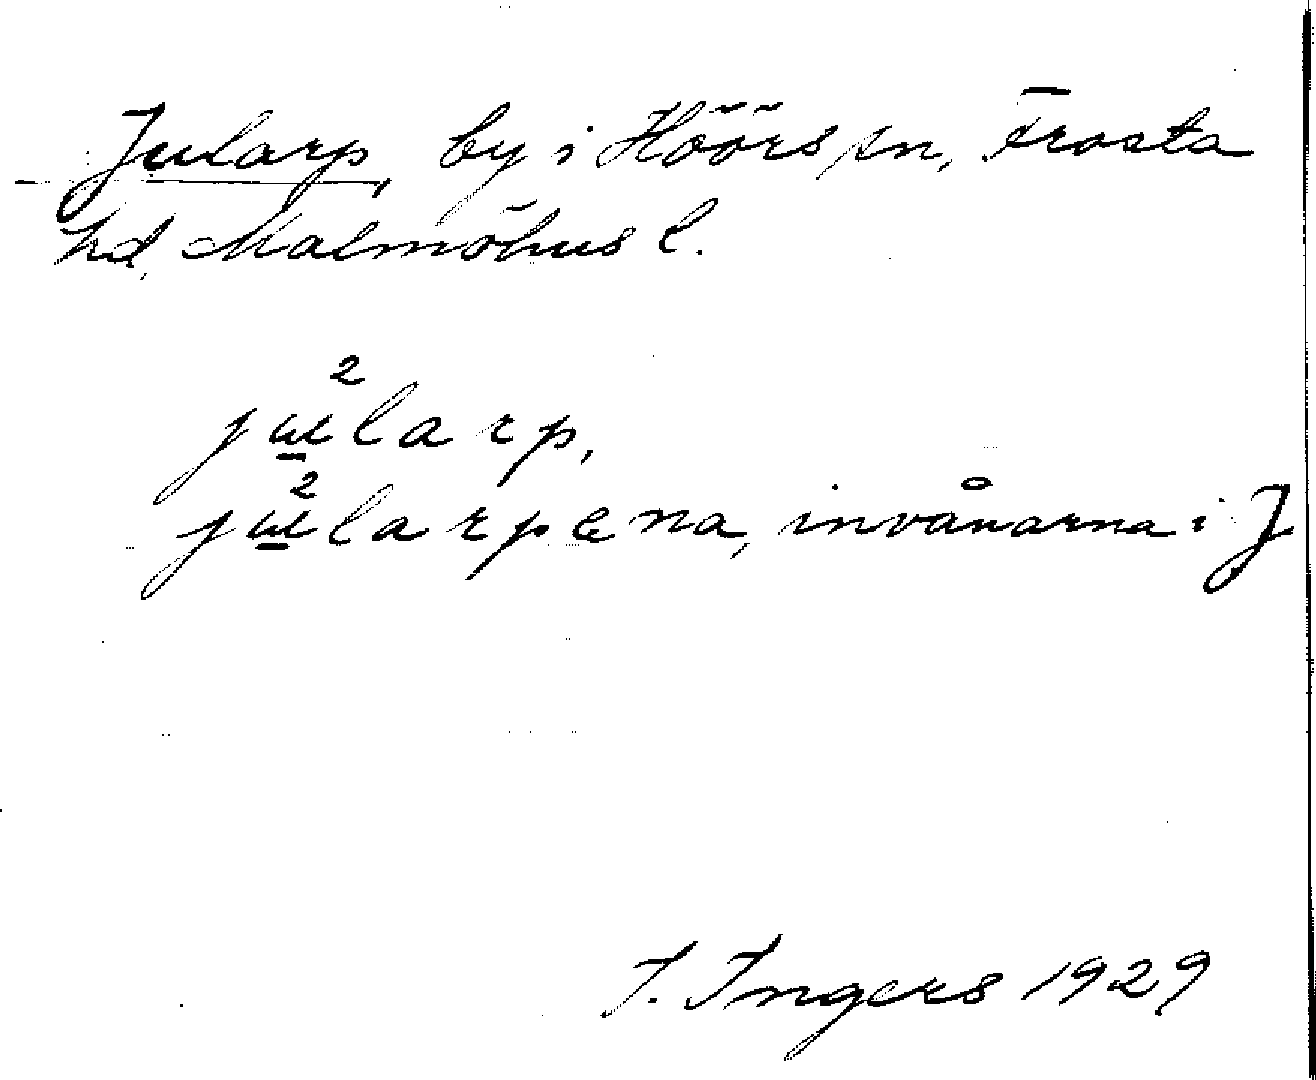 Jularp, by i Höörs sn, Frosta
hd, Malmöhus l.
jɯ²larp,
jɯ²larpəna, invånarna i J
I. Ingers 1929